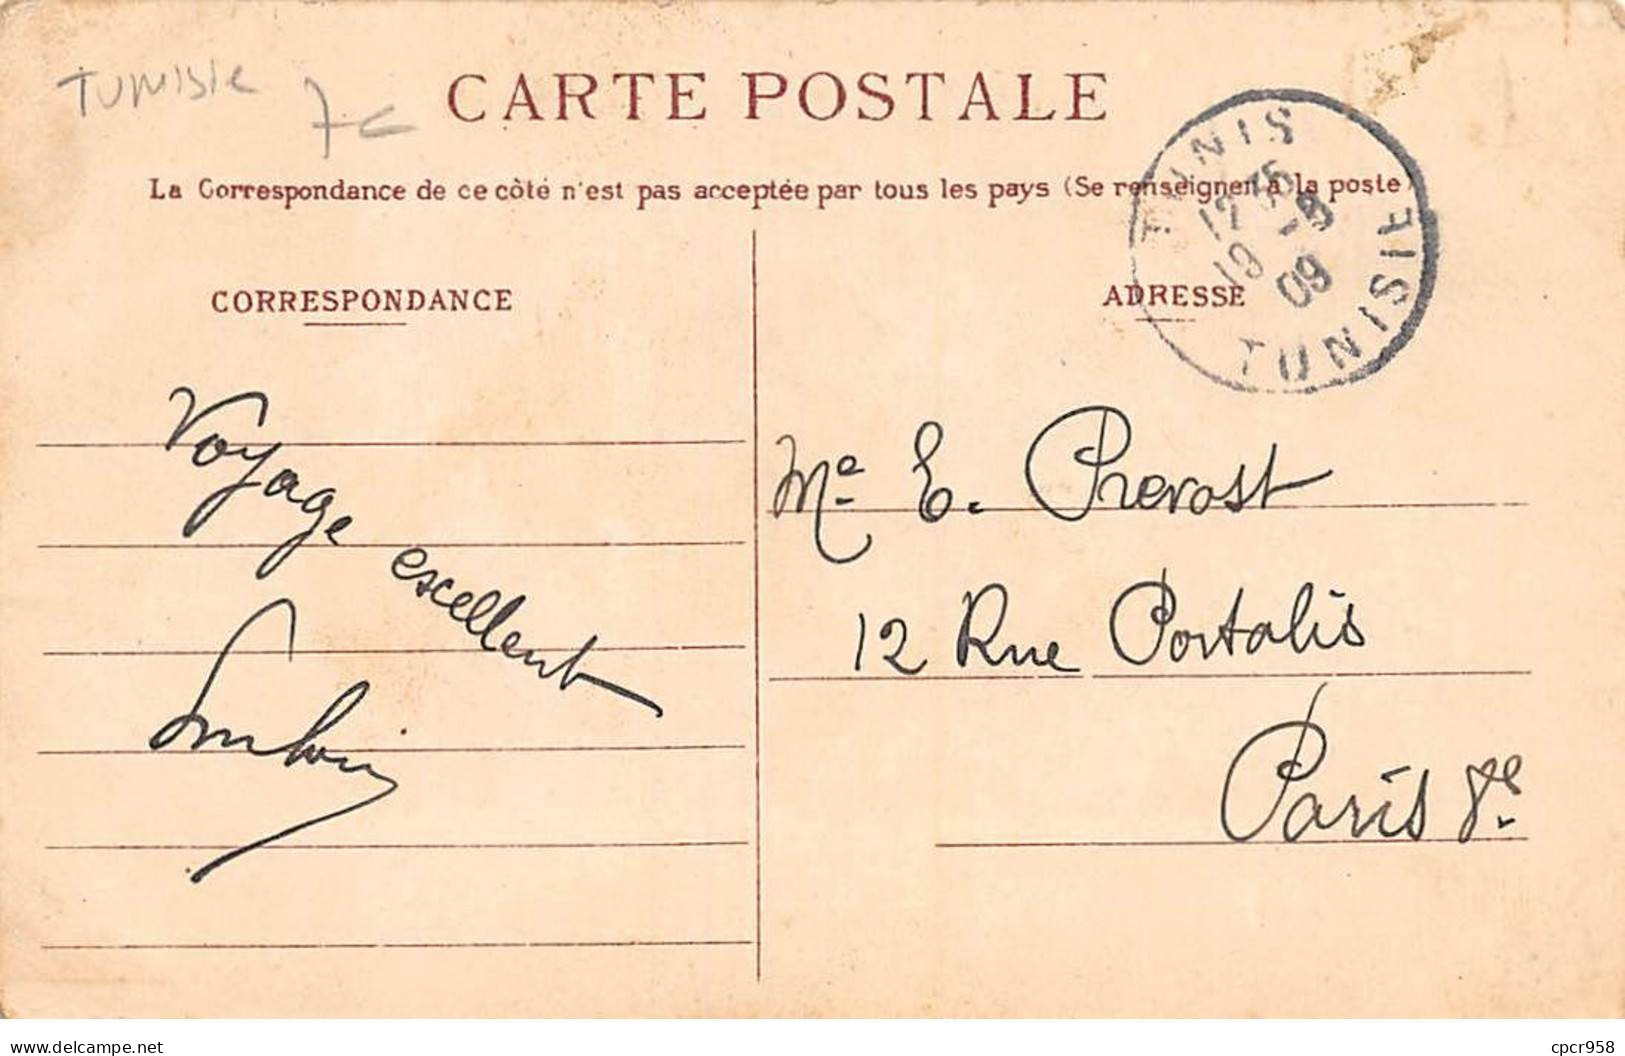 Tunisie 7c
CARTE POSTALE
La Correspondance de ce côté n'est pas acceptée par tous les pays (Se renseigner à la poste)
TUNIS
19 -9
09
TUNISIE
CORRESPONDANCE
ADRESSE
Voyage
excellent
Me E. Prevost
12 Rue Portalis
Paris 8e
delcampe.net
cpcr958